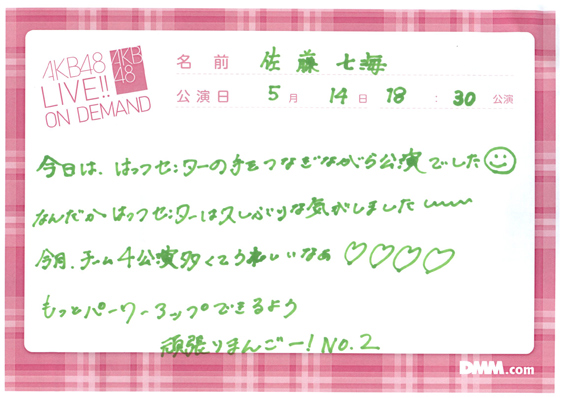 AKB48
LIVE!!
ON DEMAND
AKB
48
名前 佐藤七海
公演日 5月 14日 18:30 公演
今日は、はっつセ:ターの手をつなぎながら公演でした
なんだかはっつセ:ターは久しぶりな気がしました
今月、チーム4公演多くてうれしいなぁ♡♡♡♡
もっとパーワーアップできるよう
頑張りまんごー!NO.2
DMM.com